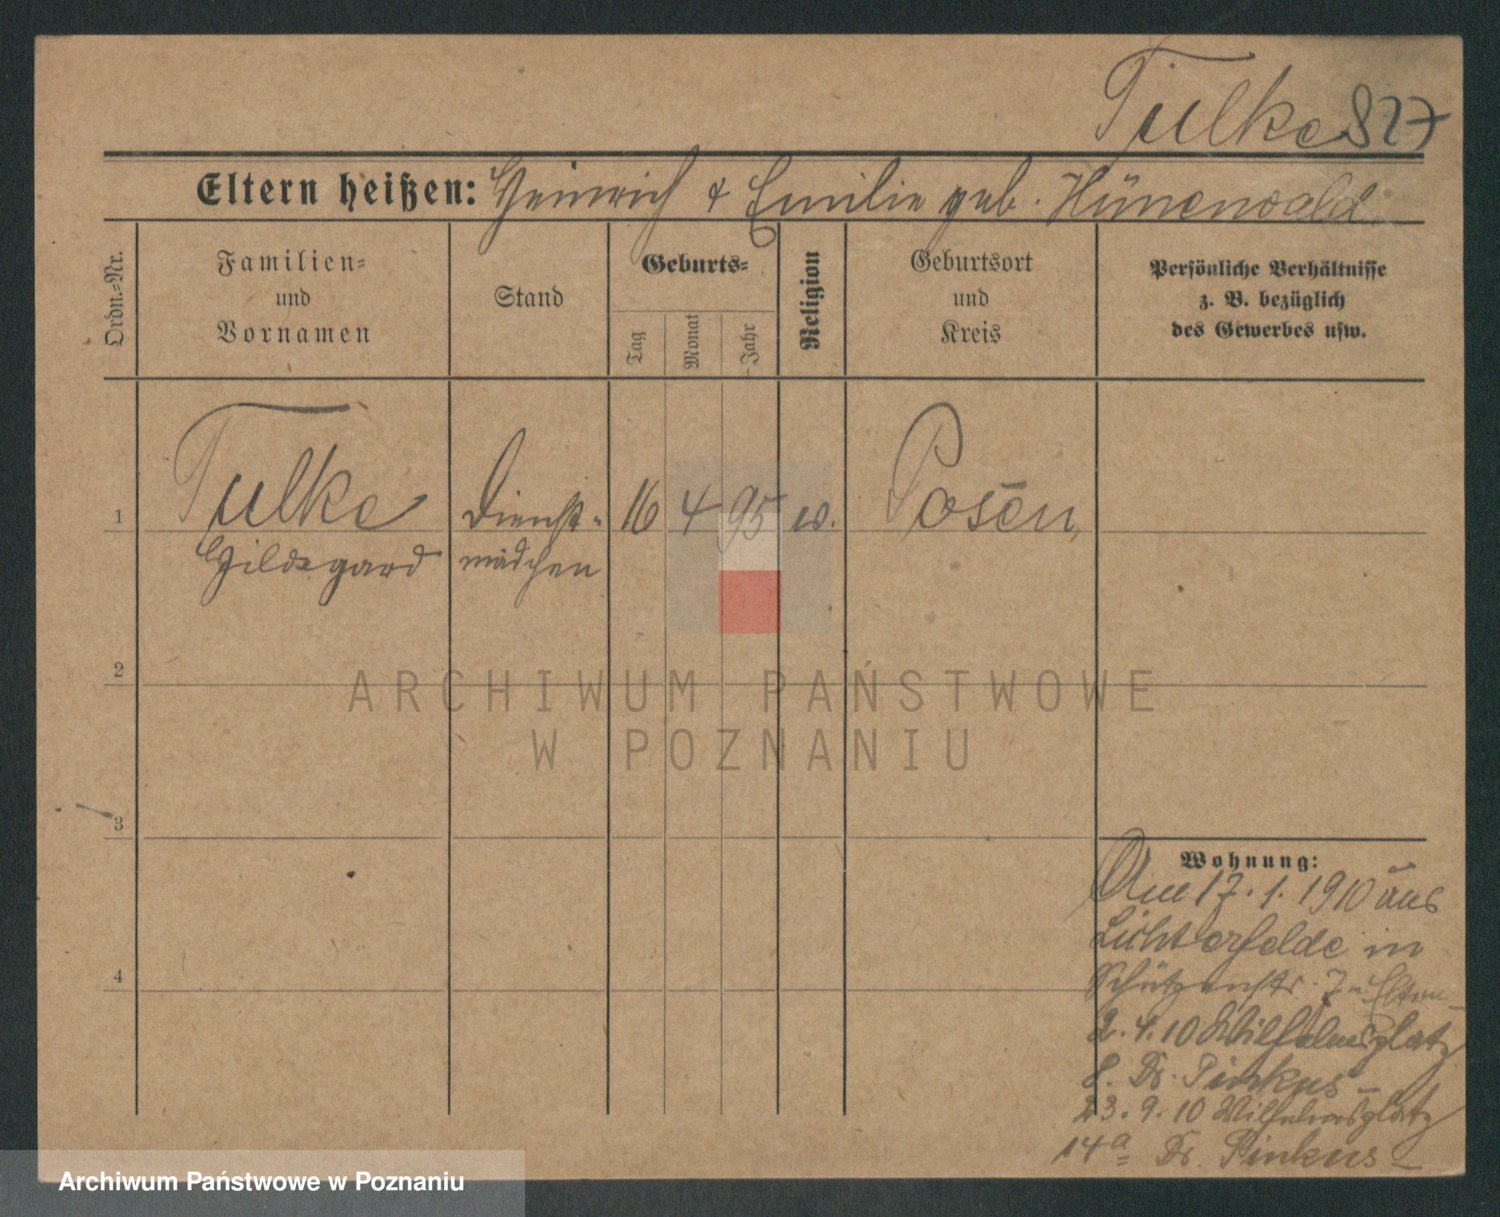 Tulke 827
Eltern heißen: Heinrich & Emilie geb. Hünenwald
Ordn.-Nr.
Familien-
und
Vornamen
Stand
Geburts-
Tag
Monat
Jahr
Religion
Geburtsort
und
Kreis
Persönliche Verhältnisse
z. B. bezüglich
des Gewerbes usw.
1 Tulke Dienst- 16 4 95 ev. Posen
Hildegard mädchen
2
ARCHIWUM PAŃSTWOWE
W POZNANIU
3
Wohnung:
Am 17.1.1910 aus
Lichterfelde in
Schützenstr. 7 Eltern
2.4.10 Wilhelmsplatz
8. Dr. Pinkus
4
23.9.10 Wilhelmsplatz
14a Dr. Pinkus
Archiwum Państwowe w Poznaniu